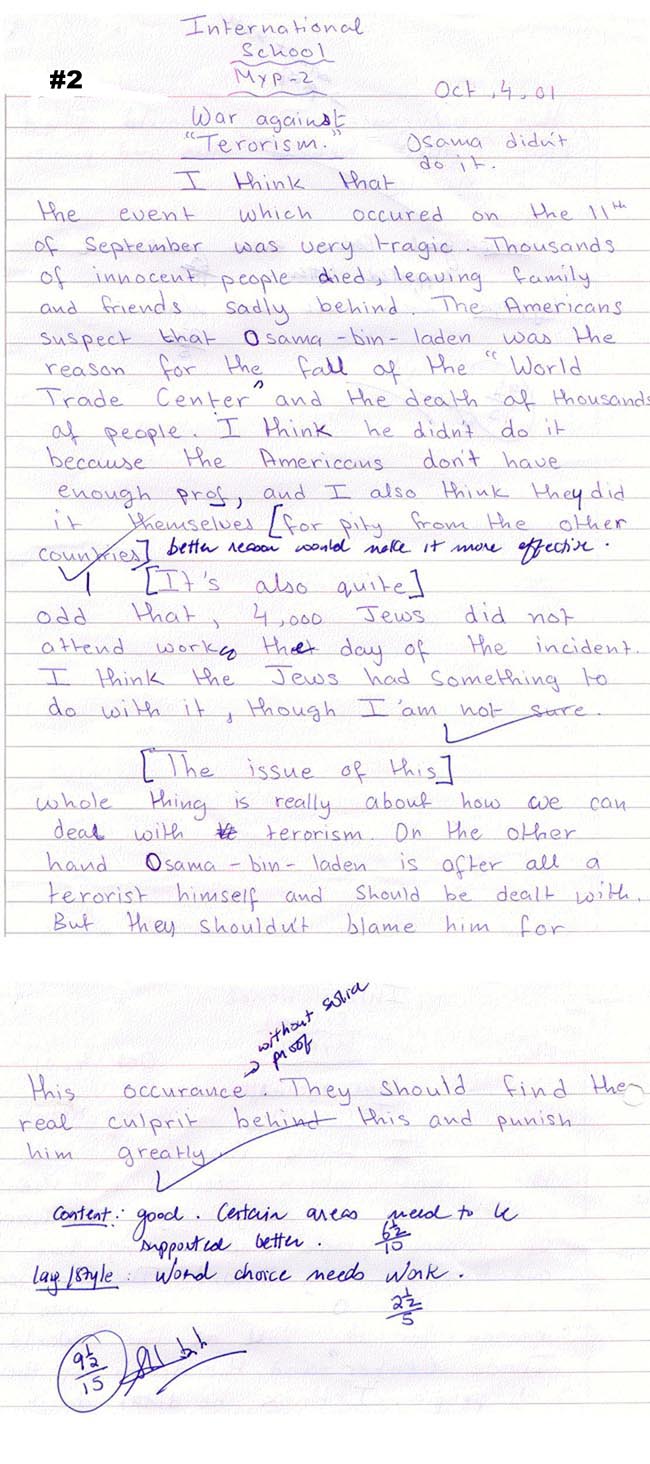 International
School
Myp-2
#2
Oct, 4, 01
War against
"Terorism."
Osama didn't
do it.
I think that
the event which occured on the 11th
of September was very tragic. Thousands
of innocent people died, leaving family
and friends sadly behind. The Americans
suspect that Osama-bin-laden was the
reason for the fall of the "World
Trade Center" and the death of thousands
of people. I think he didn't do it
because the Americans don't have
enough prof, and I also think they did
it themselves [for pity from the other
countries] better reason would make it more effective.
[It's also quite]
odd that, 4,000 Jews did not
attend work that day of the incident.
I think the Jews had something to
do with it, though I'am not sure.
[The issue of this]
whole thing is really about how we can
deal with terorism. On the other
hand Osama-bin-laden is after all a
terorist himself and should be dealt with.
But they shouldn't blame him for
without solid
proof
this occurance. They should find the
real culprit behind this and punish
him greatly.
Content: good. Certain areas need to be
supported better. 6½/10
lag/style: Word choice needs work.
2½/5
9½/15